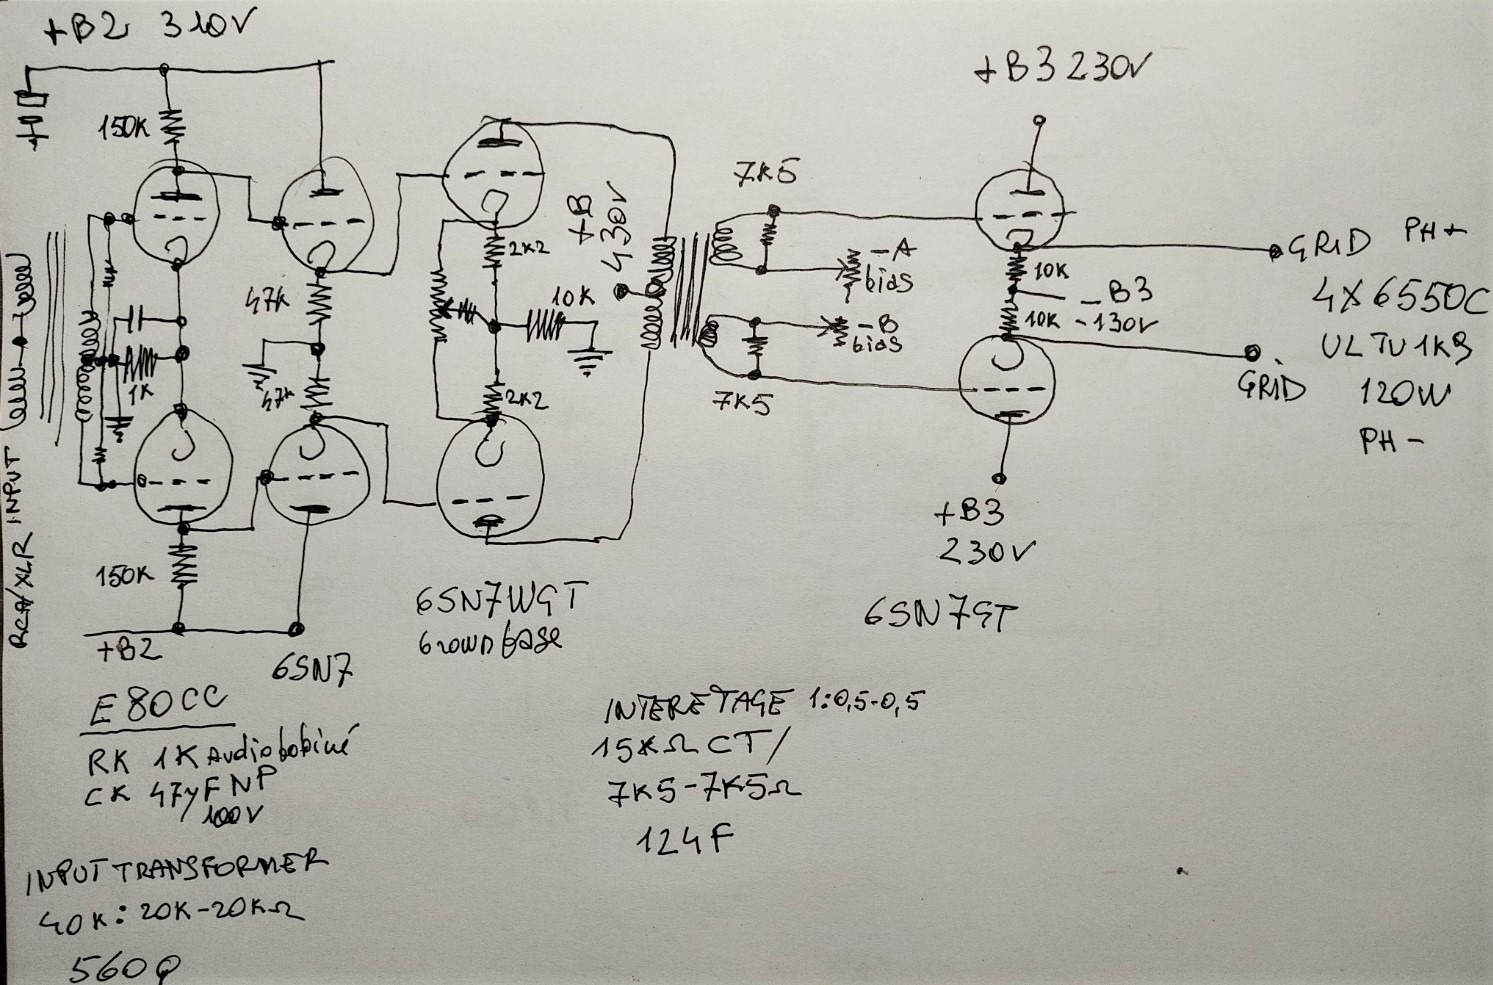 +B2 310V
150K
47K
1K
47K
150K
+B2
RCA/XLR INPUT
6SN7
E80CC
RK 1K Audiobobiné
CK 47µF NP
100V
INPUT TRANSFORMER
40K: 20K-20KΩ
2K2
10K
2K2
6SN7WGT
+B
430V
7K5
-A
bias
-B
bias
7K5
INTERETAGE 1:0,5-0,5
15KΩ CT/
7K5-7K5Ω
124F
+B3 230V
10K
-B3
10K
-130V
+B3
230V
6SN7GT
GRID PH+
4X6550C
120W
GRID
PH-